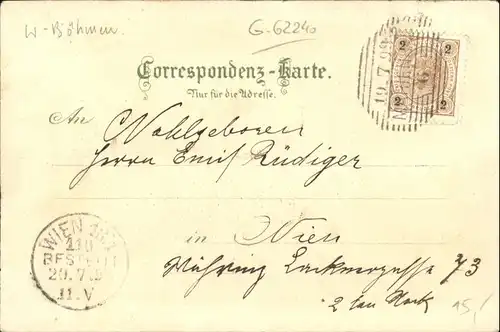 W-Böhmen.
G-62240
Correspondenz-Karte.
Nur für die Adresse.
2 2
2 2
19.7.99
An Wohlgeboren
Herrn Emil Rüdiger
in Wien
Währing 73
2
WIEN 18/1
110
BESTELLT
20.7.9
11.V
15,-